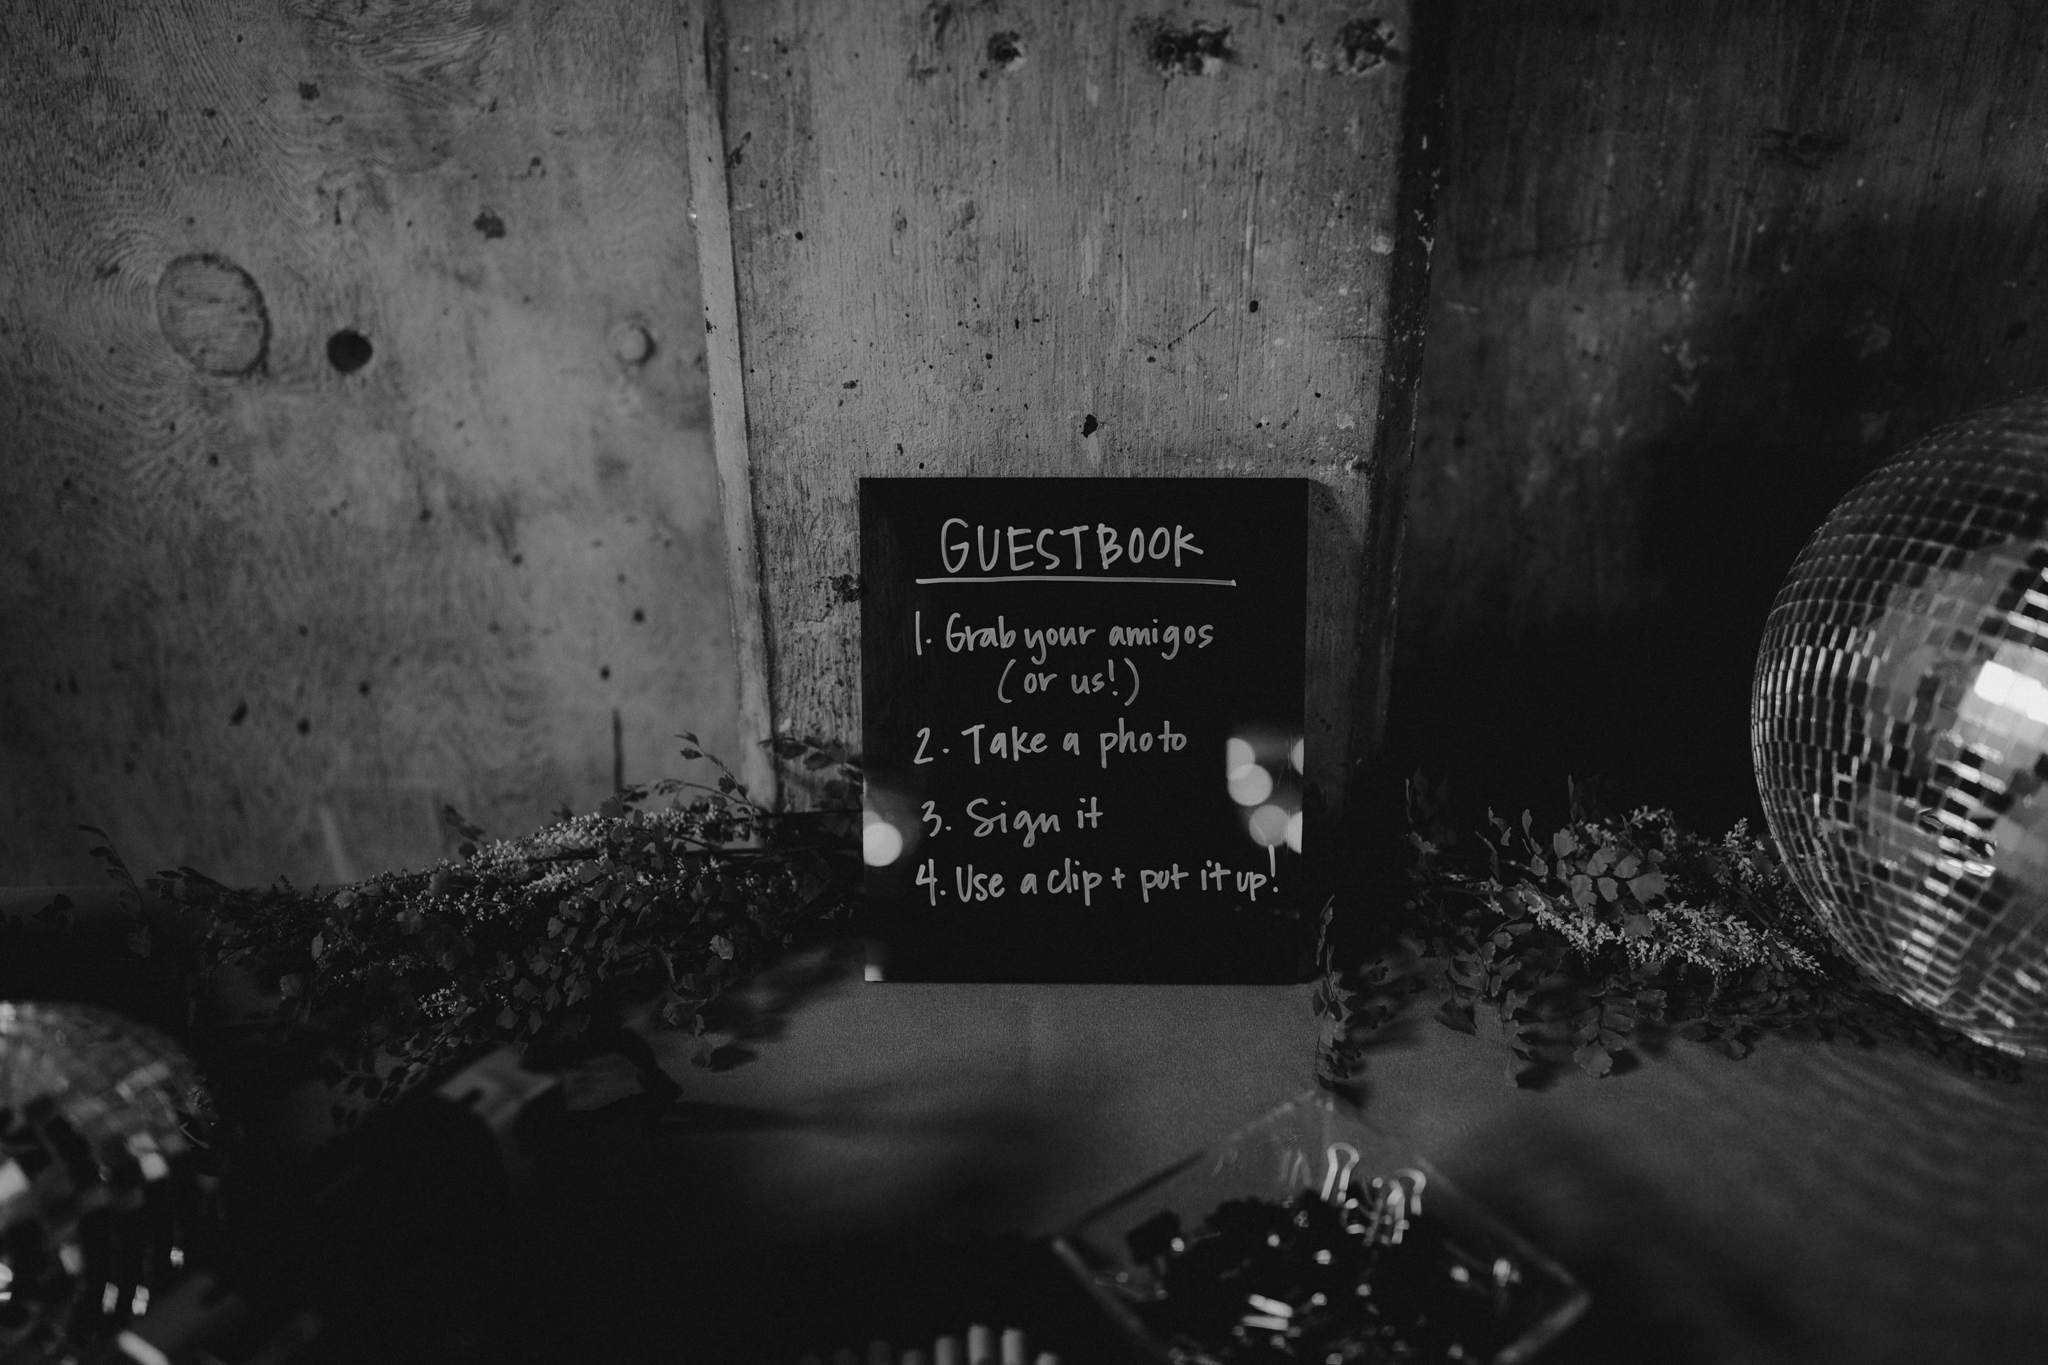 GUESTBOOK
1. Grab your amigos
(or us!)
2. Take a photo
3. Sign it
4. Use a clip + put it up!